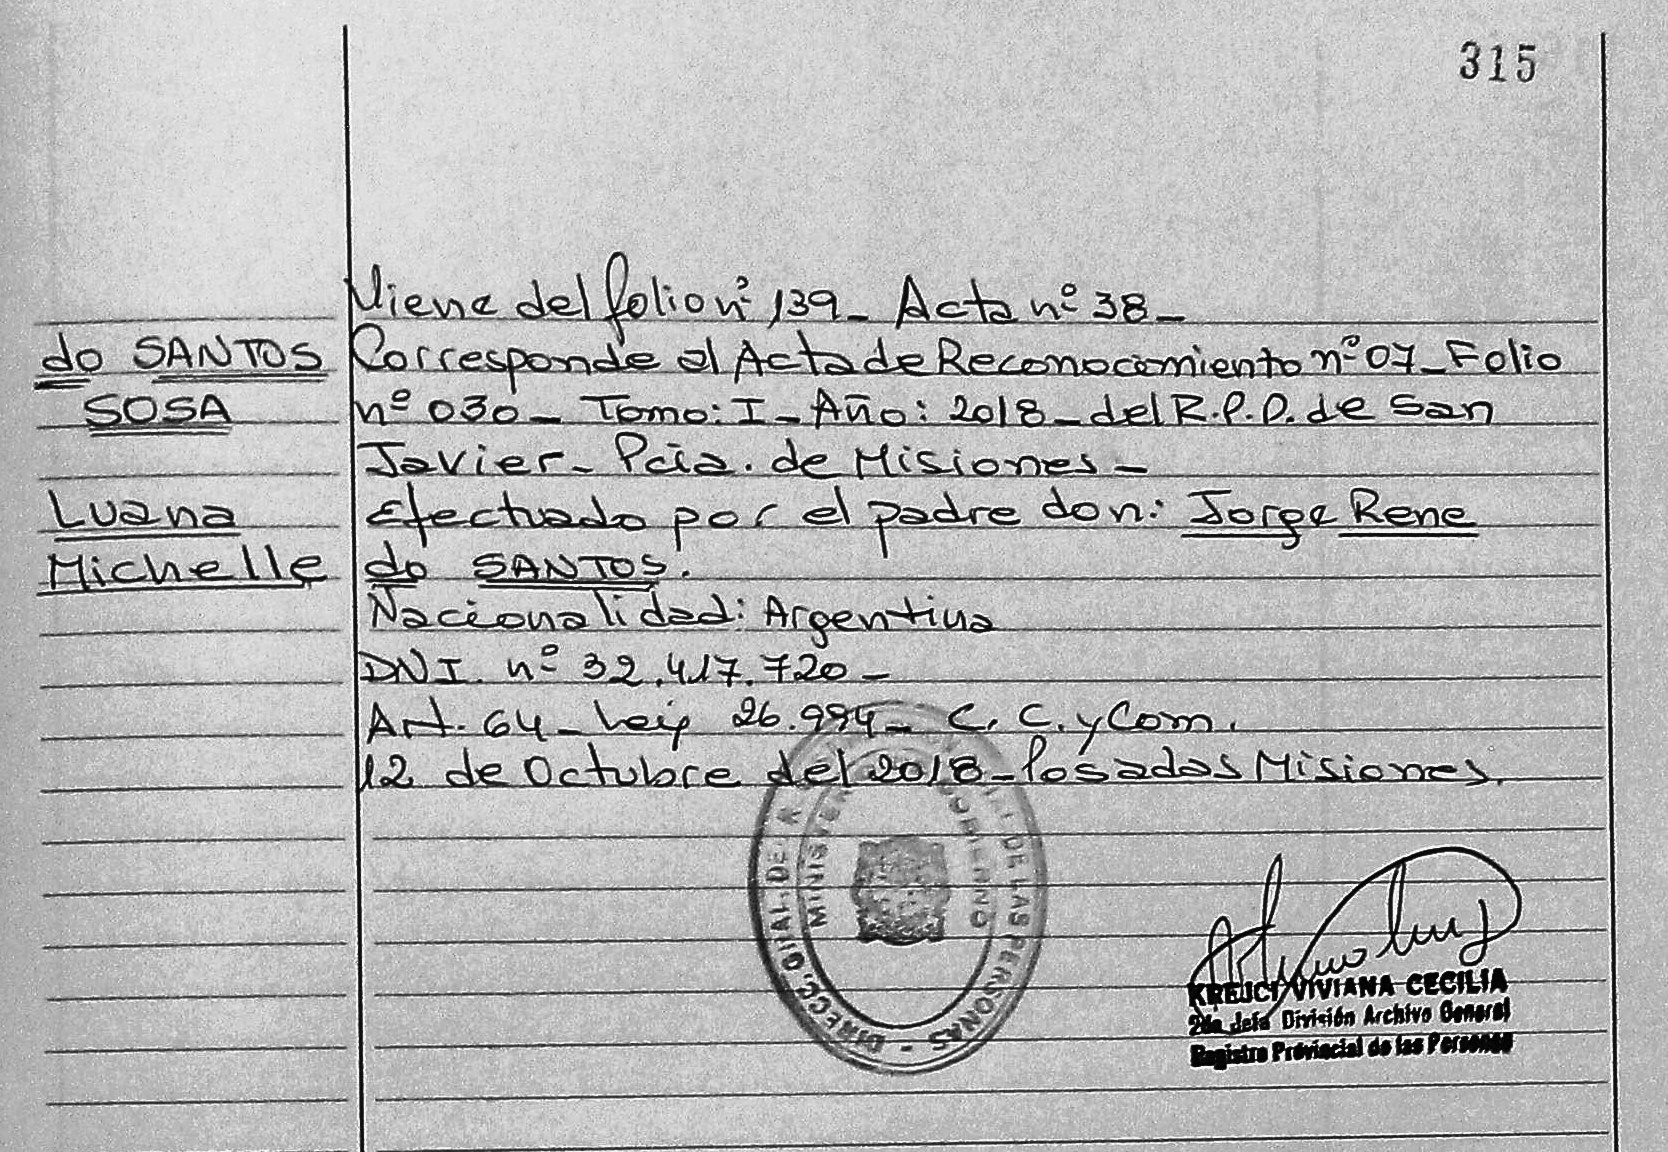 315
Viene del folio nº 139_ Acta nº 38_
do SANTOS
SOSA
Luana
Michelle
Corresponde al Acta de Reconocimiento nº 07_Folio
nº 030_ Tomo: I_Año: 2018_del R.P.D. de San
Javier_ Pcia. de Misiones_
Efectuado por el padre don: Jorge Rene
do SANTOS.
Nacionalidad: Argentina
DNI. nº 32.417.720_
Art. 64_Ley 26.994_ C. C. y Com.
12 de Octubre del 2018_Posadas Misiones.
DE LAS PERSONAS - DIRECC. GRAL. DE
MINISTER GOBIERNO
KREJCI VIVIANA CECILIA
2da Jefa División Archivo General
Registro Provincial de las Personas